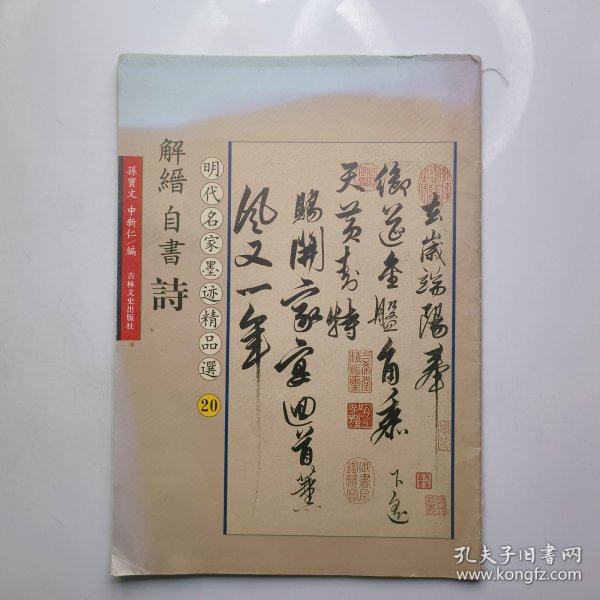 解縉自書詩
明代名家墨迹精品選
20
孫寶文 申新仁/編
吉林文史出版社
去歲端陽奉
御筵金盤角黍下
天黃封特
賜開家宴迴首薰
風又一年
孔夫子旧书网
www.kongfz.com